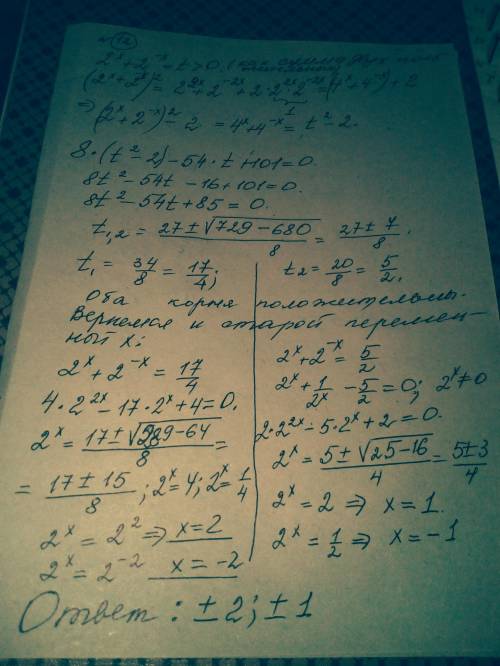 №12
2^x + 2^-x = t > 0. (как сумма двух
(2^x + 2^-x)^2 = 2^2x + 2^-2x + 2·2^x·2^-x = (4^x + 4^-x) + 2
1
=> (2^x + 2^-x)^2 - 2 = 4^x + 4^-x = t^2 - 2.
8·(t^2 - 2) - 54·t + 101 = 0.
8t^2 - 54t - 16 + 101 = 0.
8t^2 - 54t + 85 = 0.
t1,2 = (27 ± √(729 - 680))/8 = (27 ± 7)/8.
t1 = 34/8 = 17/4;
t2 = 20/8 = 5/2.
Оба корня положительны.
Вернемся к старой перемен-
ной x:
2^x + 2^-x = 17/4
4·2^2x - 17·2^x + 4 = 0.
2^x = (17 ± √(289 - 64))/8 =
= (17 ± 15)/8; 2^x = 4; 2^x = 1/4
2^x = 2^2 => x = 2
2^x = 2^-2 x = -2
2^x + 2^-x = 5/2
2^x + 1/2^x - 5/2 = 0; 2^x ≠ 0
2·2^2x - 5·2^x + 2 = 0.
2^x = (5 ± √(25 - 16))/4 = (5 ± 3)/4
2^x = 2 => x = 1.
2^x = 1/2 => x = -1
Ответ: ±2; ±1